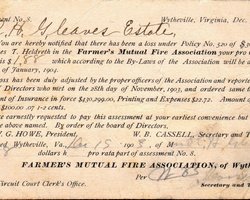 ent No. 8. Wytheville, Virginia, Dec.
H. Gleaves Estate,
You are hereby notified that there has been a loss under Policy No. 520 of $
es T. Heldreth in the Farmer's Mutual Fire Association your pro
$ 1.88 which according to the By-Laws of the Association will be
ary, 1904.
has been duly adjusted by the proper officers of the Association and reporte
f Directors who met on the 28th day of November, 1903, and ordered same
nt of Insurance in force $170,299.00, Printing and Expenses $22.72. Amount
equested to pay this assessment at your earliest convenience but
By order of the board of Directors.
G. HOWE, President, W. B. CASSELL, Secretary and T
rd, Wytheville, Va. Dec 15 1903
dollars pro rata part of assessment No. 8.
FARMER'S MUTUAL FIRE ASSOCIATION, of Wyth
Circuit Court Clerk's Office. Per
Secretary and